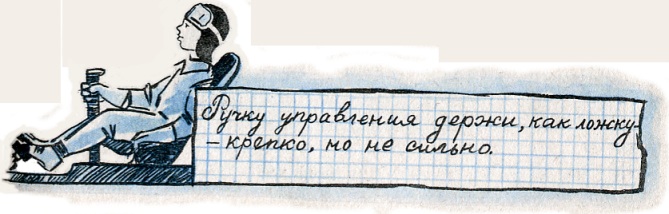 Ручку управления держи, как ложку-
- крепко, но не сильно.